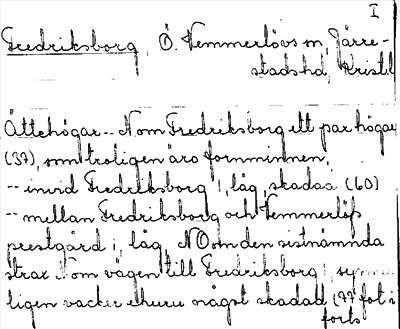 I
Fredriksborg, Ö. Vemmerlövs sn, Järre-
stads hd, Kristl.
Ättehögar -- N om Fredriksborg ett par högar
(37), som troligen äro fornminnen,
-- invid Fredriksborg 1, låg, skadad (60)
-- mellan Fredriksborg och Vemmerlöfs
prestgård 1, låg, NO om den sistnämnda
strax N om vägen till Fredriksborg 1, synner-
ligen vacker ehuru något skadad, (77 fot i
forts